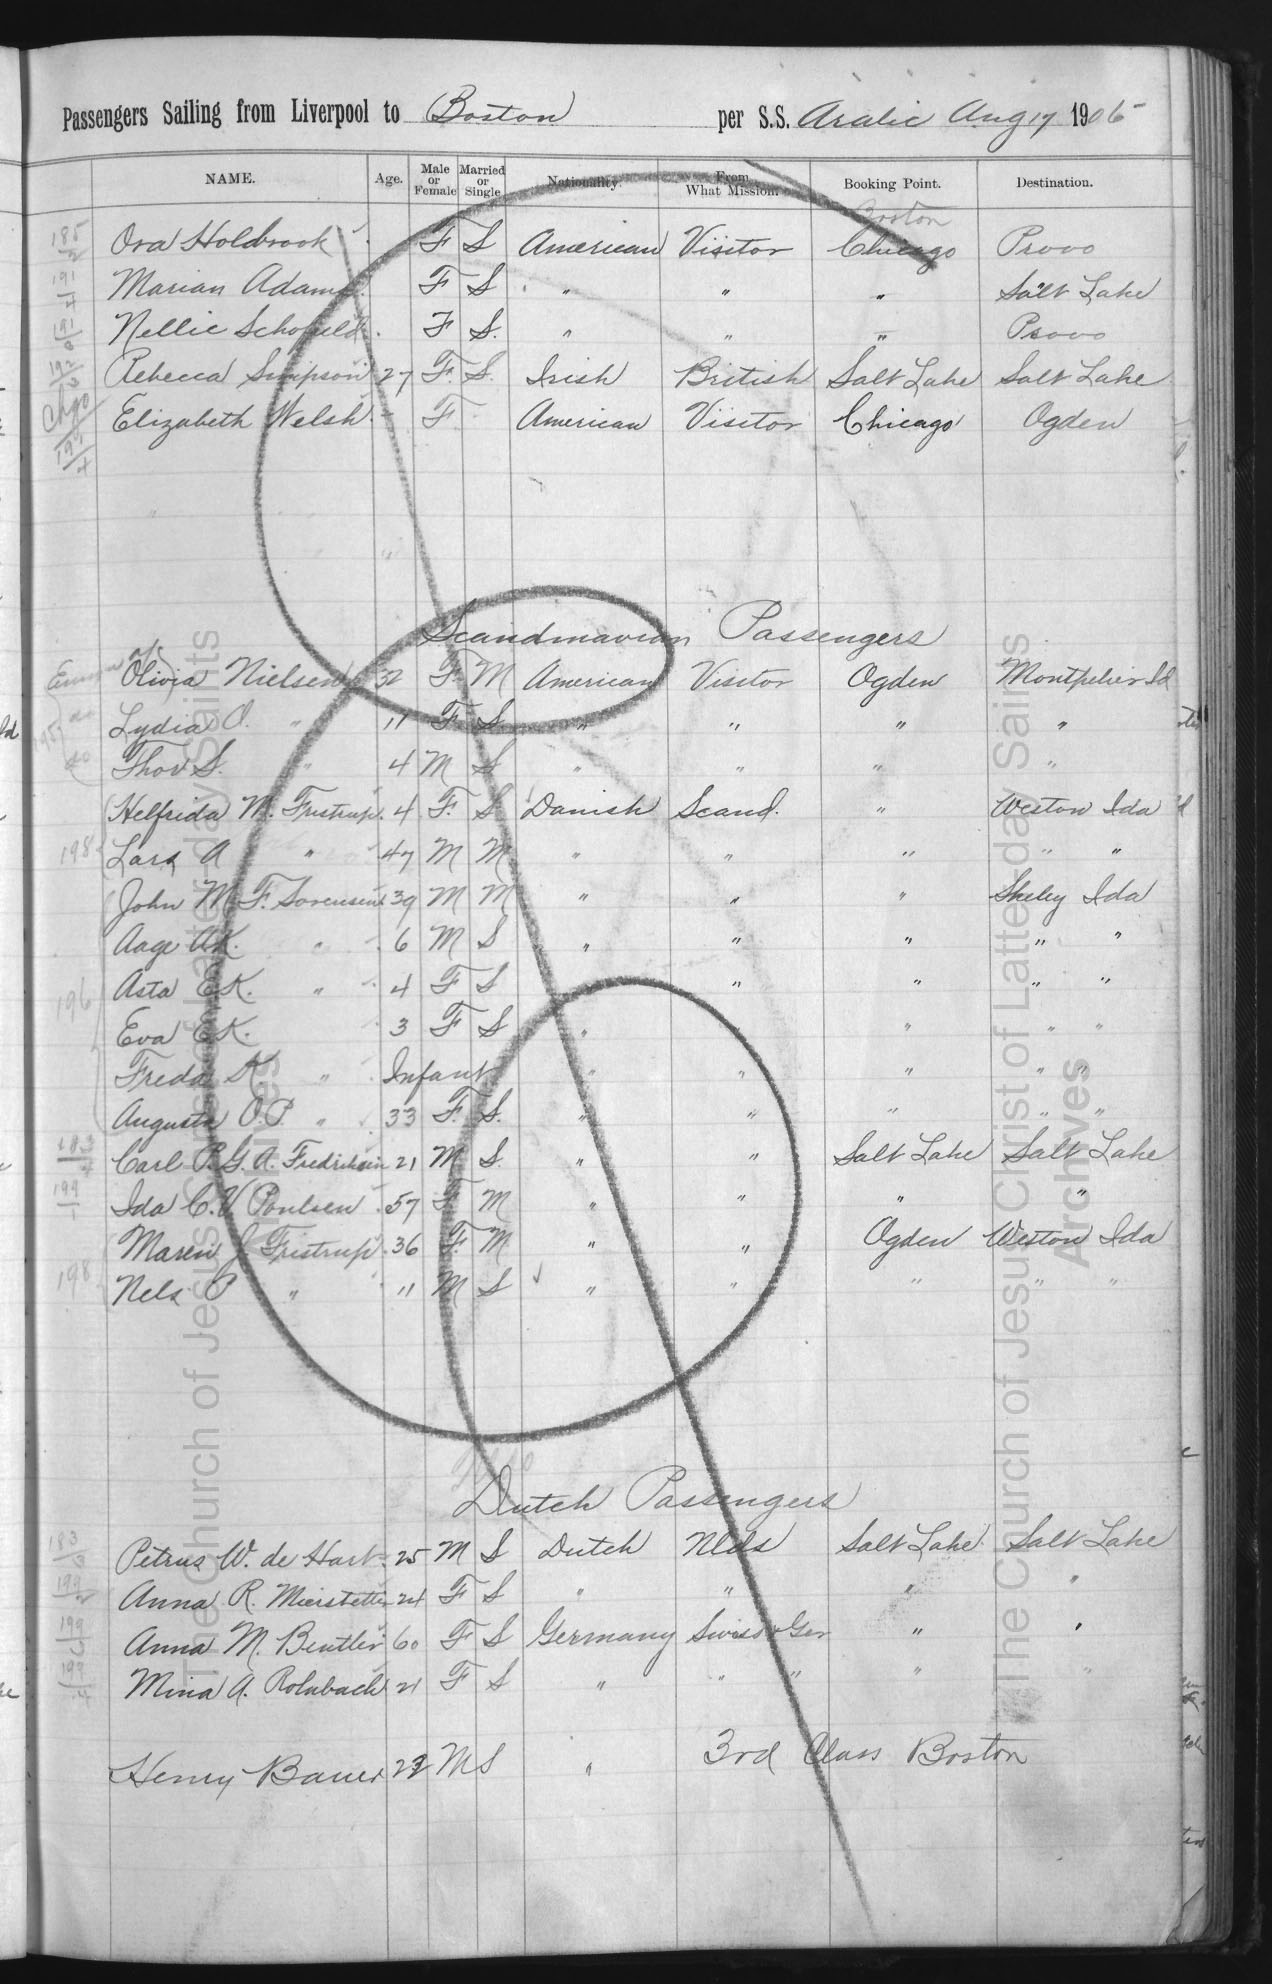 Passengers Sailing from Liverpool to Boston per S.S. Arabic Aug 17 1905
NAME. Age. Male or Female Married or Single Nationality. From What Mission. Booking Point. Destination.
Boston
185/2 Ora Holdbrook F S American Visitor Chicago Provo
191/4 Marian Adams F S " " " Salt Lake
Nellie Schofield F S. " " " Provo
Rebecca Simpson 27 F. S. Irish British Salt Lake Salt Lake
Chgo Elizabeth Welsh F American Visitor Chicago Ogden
Scandinavian Passengers
Olivia Nielsen 32 F. M American Visitor Ogden Montpelier Id
Lydia O. " 11 F. S. " " " "
Thov S. " 4 M S " " " "
Helfrida M. Fristrup. 4 F. S Danish Scand. " Weston Ida
198 Lars A " 47 M M " " " " "
John M. F. Sorensen 39 M M " " " Sheley Ida
Aage A K. " 6 M S " " " " "
196 Asta E K. " 4 F S " " " "
Eva E K. 3 F S " " " "
Freda K " Infant " " " " "
Augusta O.P. " 33 F. S. " " " " "
183/4 Carl P. G. A. Fredriksen 21 M S. " " Salt Lake Salt Lake
199/1 Ida C. V. Poulsen 57 F M " " " "
Maren J. Fristrup 36 F. M " " Ogden Weston Ida
198 Nels P " 11 M S " " " " "
Dutch Passengers
183 Petrus W. de Hart 25 M S Dutch Nlds Salt Lake Salt Lake
199/2 Anna R. 24 F S " " " "
199 Anna M. Beutler 60 F S Germany Swiss & Ger " "
199/4 Mina A. Rohrbach 21 F S " " " " "
Henry Bauer M S " 3rd Class Boston
The Church of Jesus Christ of Latter-day Saints
Archives
The Church of Jesus Christ of Latter-day Saints
Archives